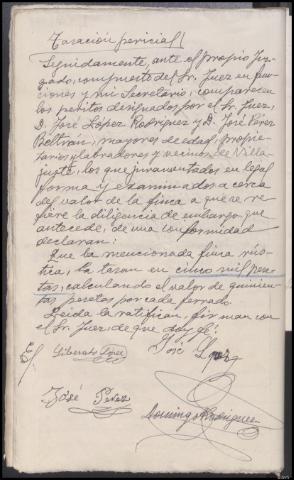 Tasación pericial/
Seguidamente, ante el propio Juz-
gado, compuesto del Sr. Juez en fun-
ciones y mi Secretario, comparecen
los peritos designados por el Sr. Juez,
D. José López Rodríguez y D. José Pérez
Beltrán, mayores de edad, propie-
tarios y labradores y vecinos de Villa-
juste, los que juramentados en legal
forma y examinados a cerca
del valor de la finca a que se re-
fiere la diligencia de embargo que
antecede, de una conformidad
declaran:
Que la mencionada finca rús-
tica, la tasan en cinco mil pese-
tas, calculando el valor de quinien-
tas pesetas por cada ferrado.
Leida la ratifican, firman con
el Sr. Juez, de que doy fé:
E/ Liberato López José López
José Pérez
Domingo Rodríguez